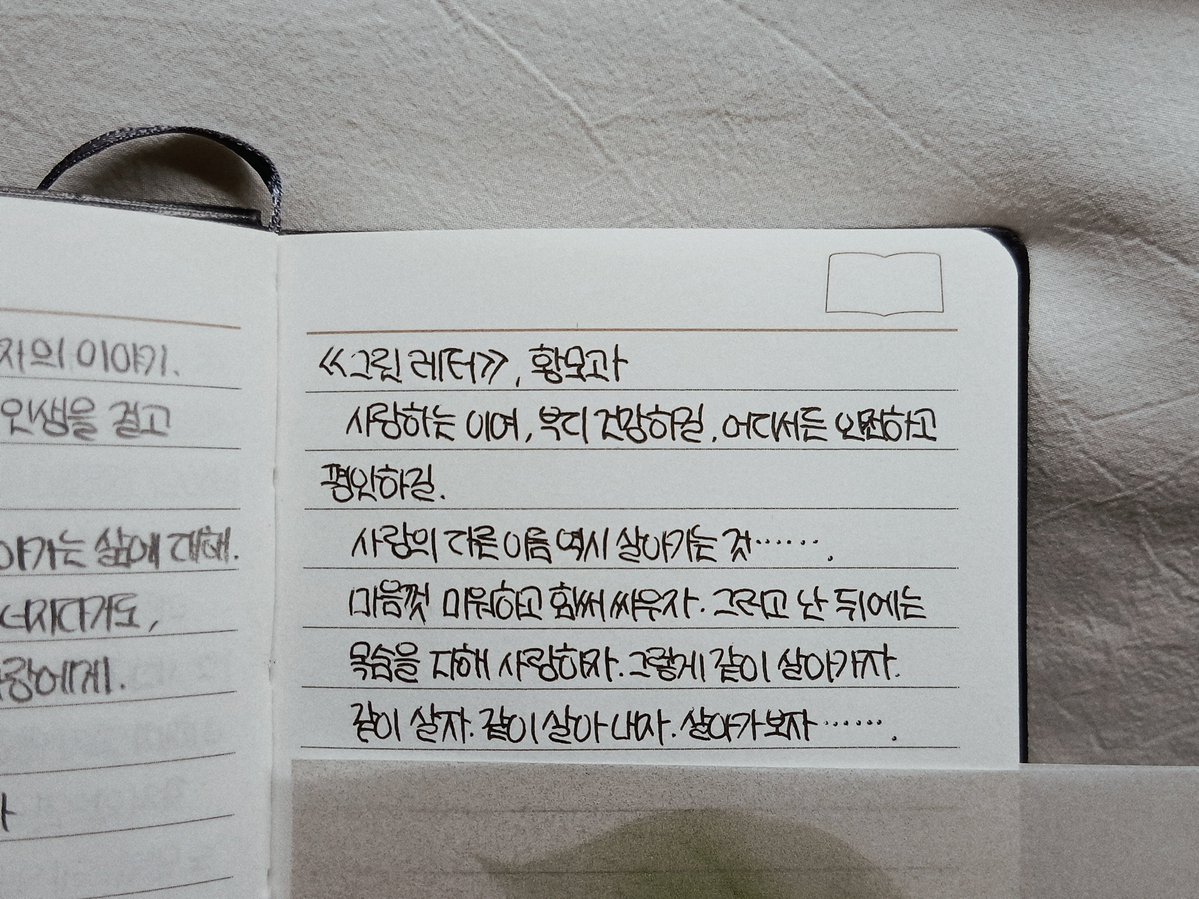 자의 이야기.
인생을 걸고
아가는 삶에 대해.
너지다가도,
사랑에게.
《그린 레터》, 황모과
사랑하는 이여, 부디 건강하길. 어디서든 안전하고
평안하길.
사랑의 다른 이름 역시 살아가는 것…….
마음껏 미워하고 힘써 싸우자. 그리고 난 뒤에는
목숨을 다해 사랑하자. 그렇게 같이 살아가자.
같이 살자. 같이 살아 내자. 살아가 보자…….